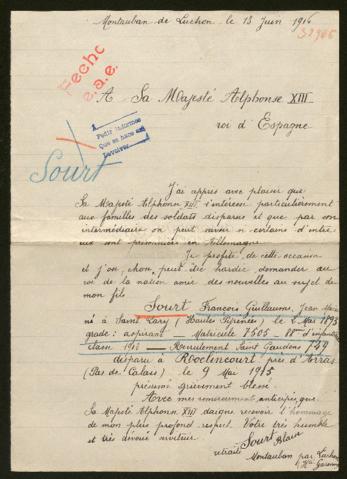 Montauban de Luchon le 13 Juin 1916
Fecho
e.a.e.
A Sa Majesté Alphonse XIII
roi d'Espagne
Pedir informes
Que se hace así
Sourt
J'ai appris avec plaisir que
Sa Majesté Alphonse XIII s'intéresse particulièrement
aux familles des soldats disparus et que par son
intermédiaire on peut savoir si certains d'entre
eux sont prisonniers en Allemagne.
Je profite de cette occasion
et j'ose, peut être hardie, demander au
roi de la nation amie des nouvelles au sujet de
mon fils
Sourt François Guillaume, Jean Marie
né à Saint Lary (Hautes Pyrénées) le 2 Mai 1895
grade: aspirant — Matricule 7505 — d'infanterie
classe — Recrutement Saint Gaudens 749
disparu à Roclincourt près d'Arras
(Pas de Calais) le 9 Mai 1915
présumé grièvement blessé.
Avec mes remerciements anticipés que
Sa Majesté Alphonse XIII daigne recevoir l'hommage
de mon plus profond respect. Votre très humble
et très dévoué serviteur.
Sourt
retraité
Montauban par Luchon
Hte Garonne